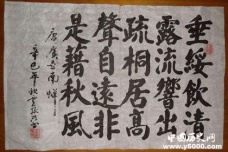 垂綏飲清
露流響出
疏桐居高
聲自遠非
是藉秋風
唐虞世南蟬
辛巳年秋
中国历史网
www.y5000.com